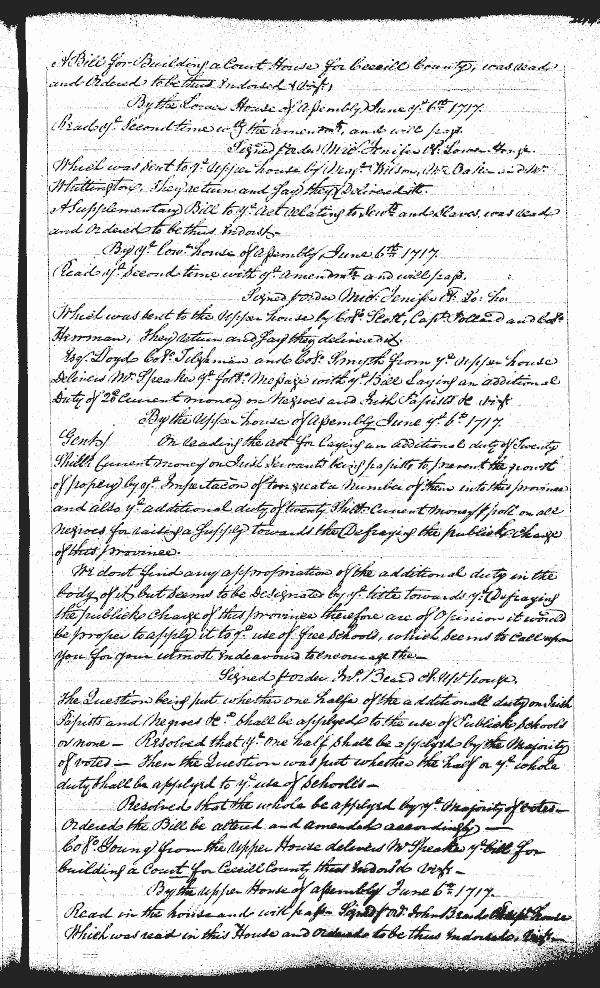 A Bill for Building a Court House for Cecill County, was read
and Ordered to be thus Endorsed Vizt,
By the Lower House of Assembly June ye 6th 1717.
Read ye Second time wth the amendmts, and will pass.
Signed p order Mich Jenifer Cl Lower House.
Which was sent to ye Upper house by Mr Wilson, Mr Oaker and Mr
Whittington, They return and say they Delivered it.
A Supplementary Bill to ye Act relating to Servts and Slaves, was read
and Ordered to be thus Endorst.
By ye Lowr house of Assembly, June 6th 1717.
Read ye Second time with ye amendmts and will pass.
Signed p order Mich. Jenifer Cl. Lo: Ho.
Which was sent to the Upper house by Col. Scott, Capt. and Col.
Herrman, They return and say they delivered it,
Esq. Loyd Col. Tilghman and Col. Smyth from ye Upper house
Delivers Mr Speaker ye follg Message with ye Bill Laying an additional
Duty of 20s Current money on Negroes and Irish Papists &c. Vizt
By the Upper house of Assembly June ye 6th 1717.
Gent. On reading the act for Laying an additional duty of Twenty
Shills Current money on Irish Servants being papists to prevent the growth
of popery by ye Importacon of too great a Number of them into this province
and also ye additional duty of twenty Shills Current Money p poll on all
Negroes for raising a Supply towards the Defraying the publick Charge
of this province.
We dont find any appropriation of the additional duty in the
body of it, but seems to be Designated by ye title towards ye Defraying
the publick Charge of this province therefore are of Opinion it would
be proper to apply it to ye use of free schools, which seems to call upon
you for your utmost Endeavour to encourage the—
Signed p order Jno. Beard Cl. Upr house.
The Question being put whether one halfe of the additionall duty on Irish
Papists and Negroes &c. shall be applyed to the use of Publick Schools
or none— Resolved that ye one half shall be applyed by the Majority
of votes— Then the Question was put whether the half or ye whole
duty shall be applyed to ye use of Schools—
Resolved that the whole be applyed by ye Majority of votes—
Ordered the Bill be altered and amended accordingly—
Col. Young from the Upper House delivers Mr Speaker ye bill for
building a Court for Cecill County, thus Endors'd vizt—
By the Upper House of assembly June 6th 1717.
Read in the house and will pass Signed p Ord. John Beard Cl upr house
Which was read in this House and ordered to be thus Endorsed, Vizt—